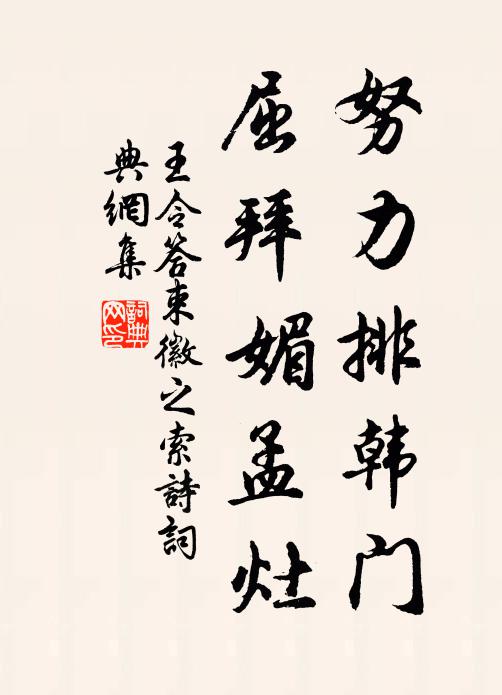 努力排韩门
屈拜媚孟灶
王令答束徽之索詩詞
典網集
詞典
网印